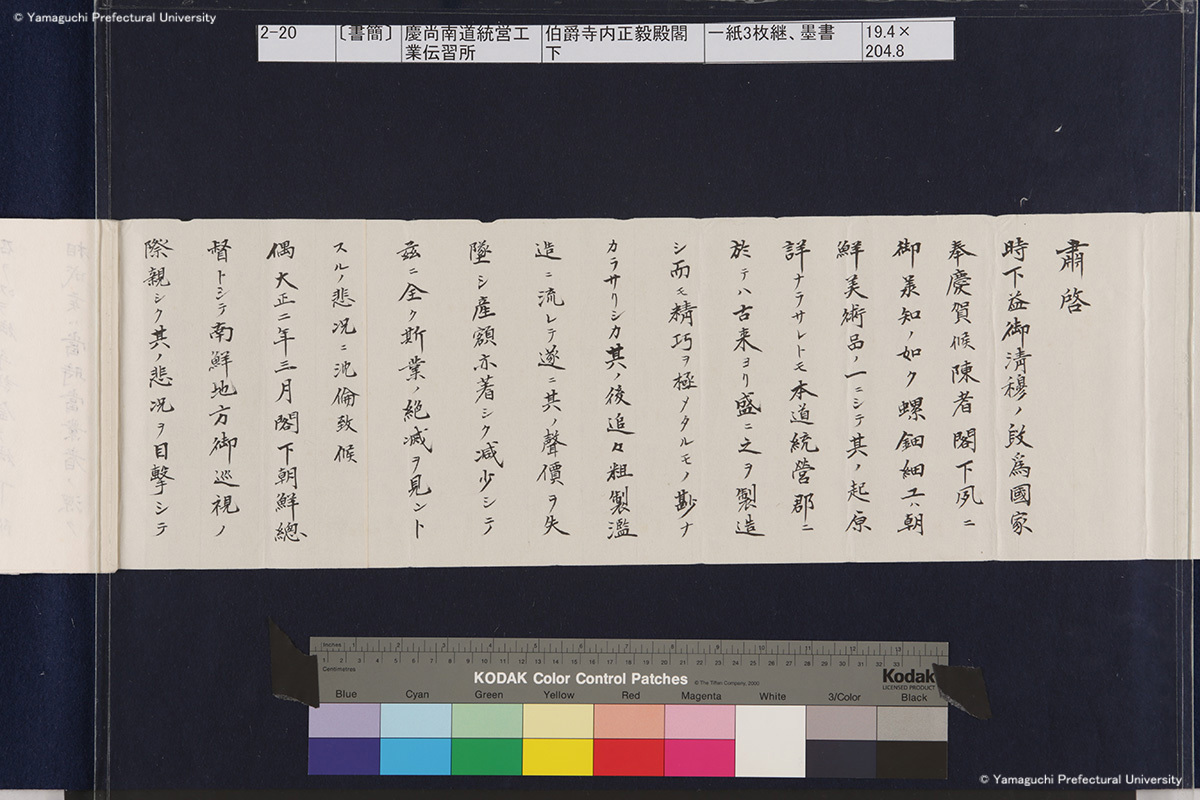 © Yamaguchi Prefectural University
2-20
〔書簡〕
慶尚南道統営工
業伝習所
伯爵寺内正毅殿閣
下
一紙3枚継、墨書
19.4×
204.8
肅啓
時下益御清穆ノ段為國家
奉慶賀候陳者閣下夙ニ
御承知ノ如ク螺鈿細工ハ朝
鮮美術品ノ一ニシテ其ノ起原
詳ナラサレトモ本道統營郡ニ
於テハ古来ヨリ盛ニ之ヲ製造
シ而モ精巧ヲ極メタルモノ尠ナ
カラサリシカ其ノ後追々粗製濫
造ニ流レテ遂ニ其ノ聲價ヲ失
墜シ産額亦著シク減少シテ
茲ニ全ク斯業ハ絶滅ヲ見ント
スルノ悲況ニ沈倫致候
偶大正二年三月閣下朝鮮總
督トシテ南鮮地方御巡視ノ
際親シク其ノ悲况ヲ目撃シテ
Inches 1 2 3 4 5 6 7 8 9 10 11 12 13
Centimetres
KODAK Color Control Patches
© The Tiffen Company, 2000
Kodak
LICENSED PRODUCT
Blue Cyan Green Yellow Red Magenta White 3/Color Black
© Yamaguchi Prefectural University